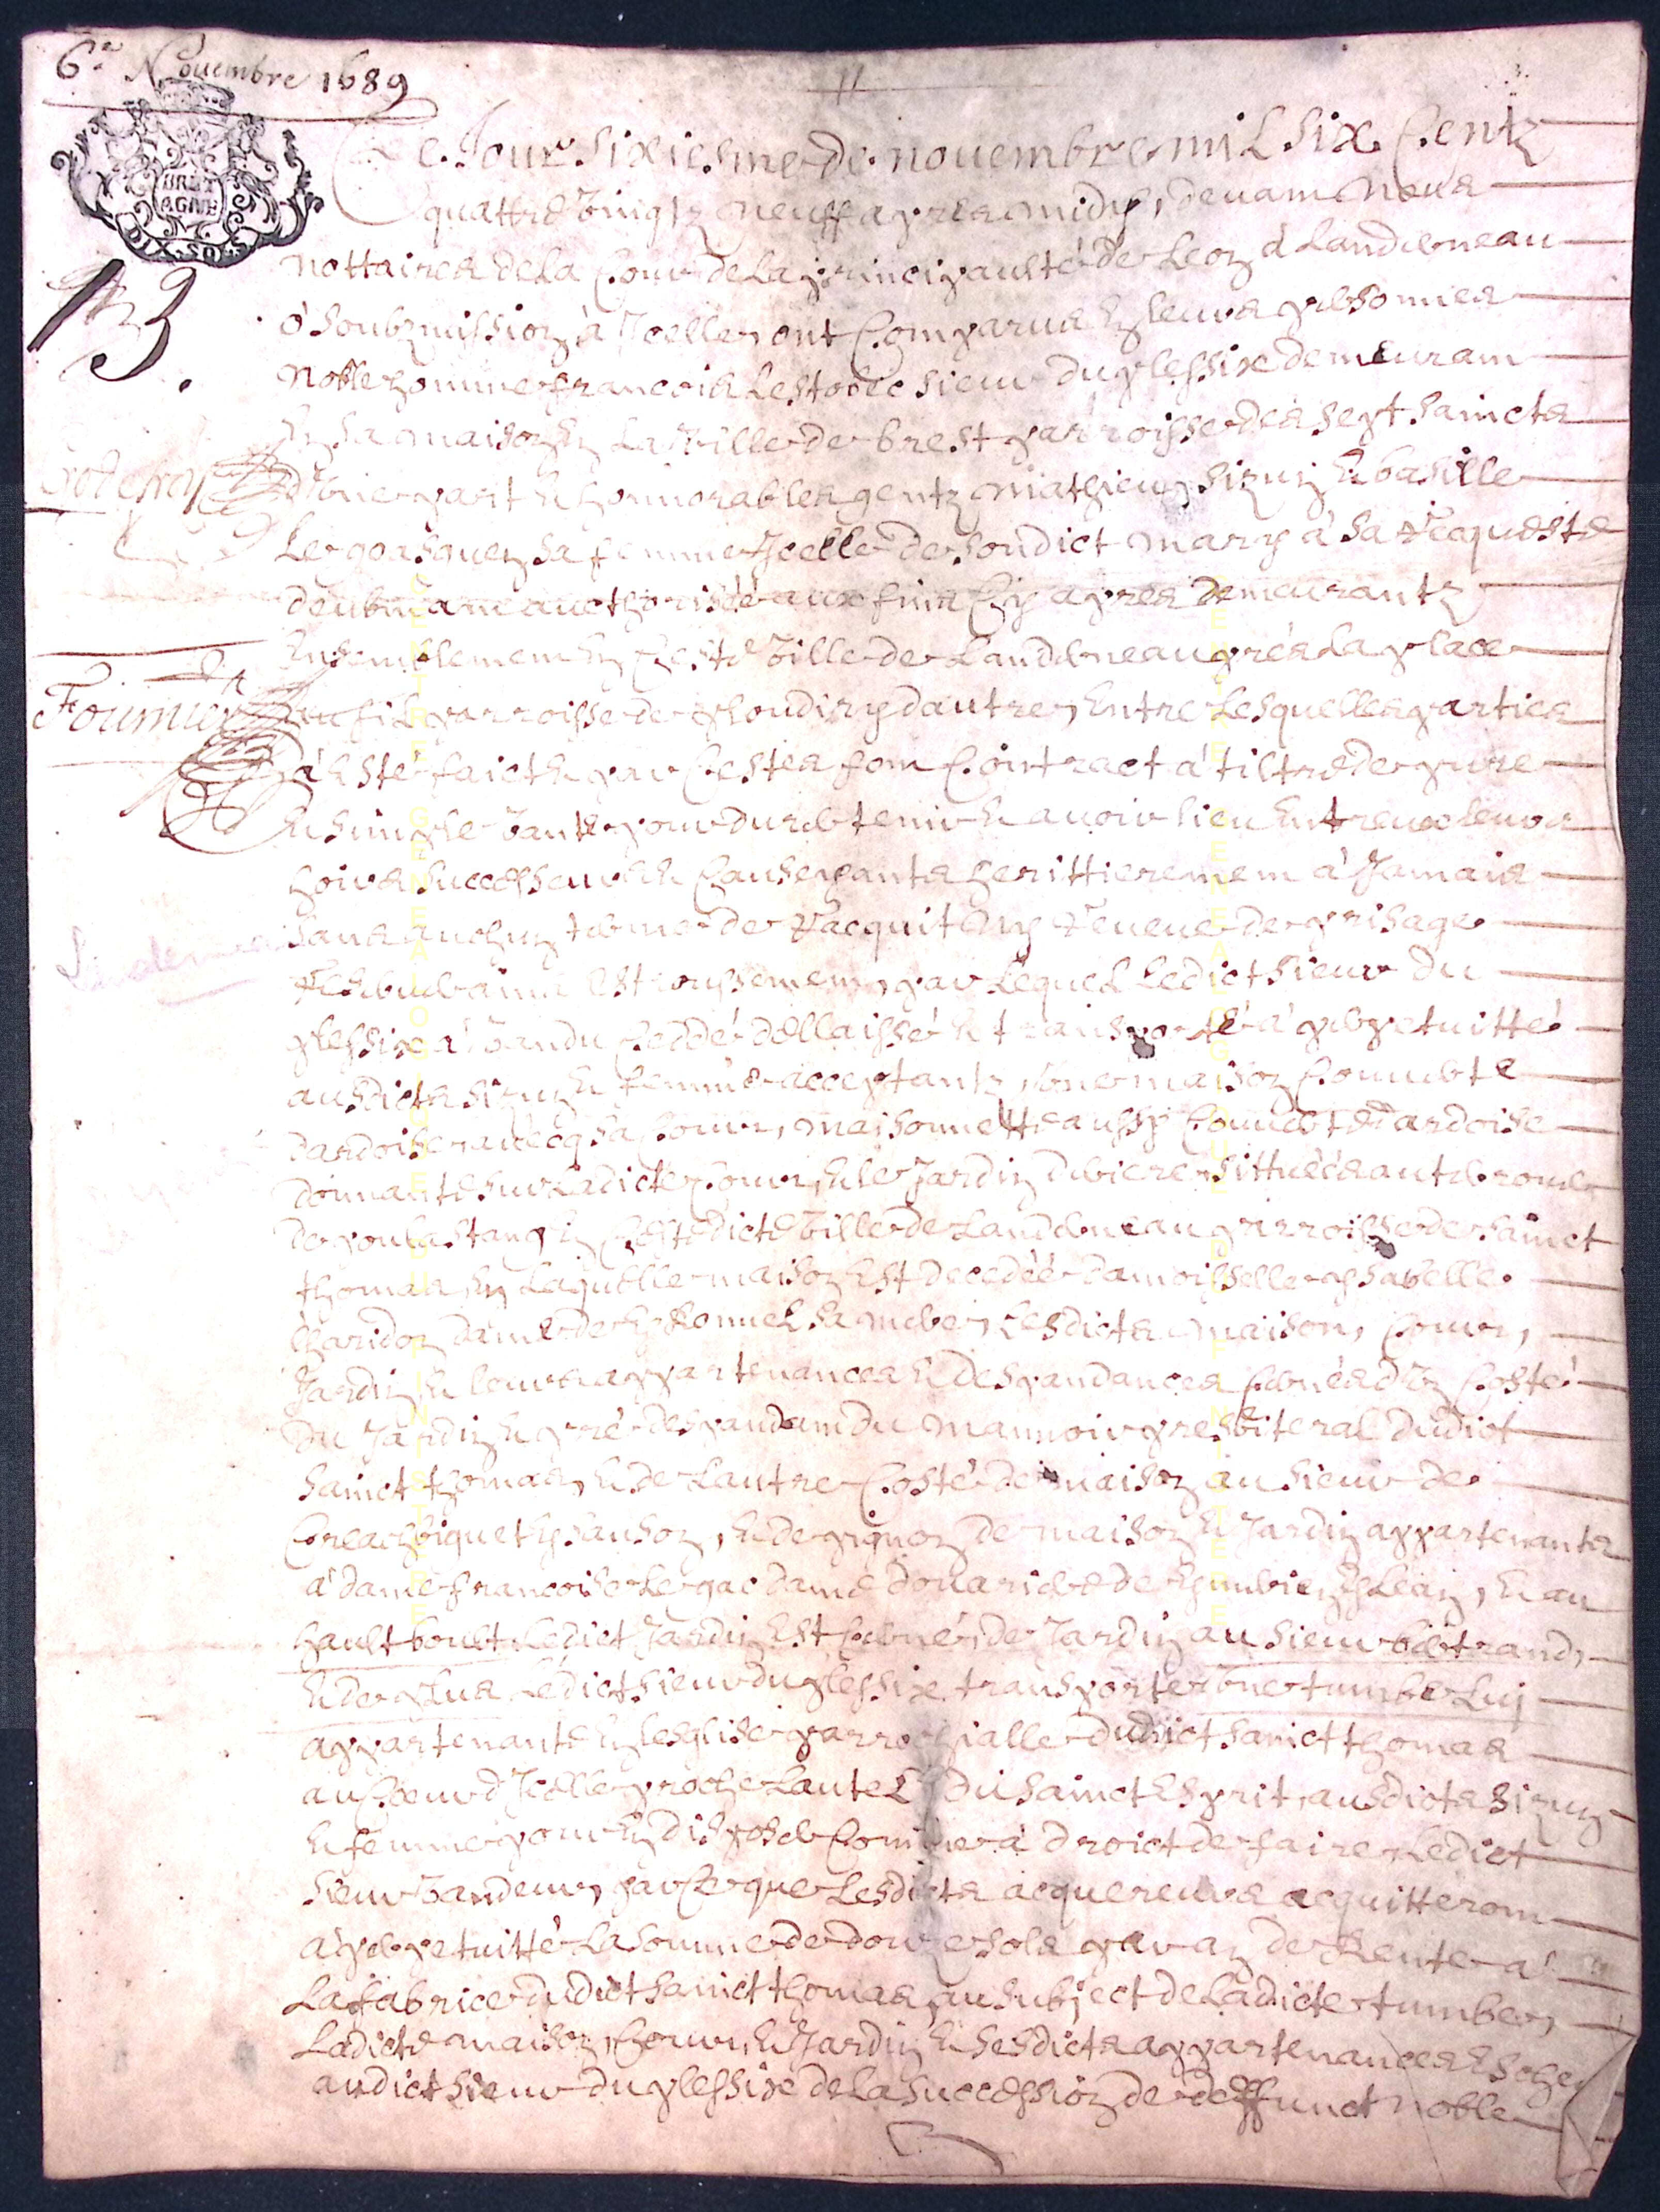 6e Novembre 1689
BRET
AGNE
DIX SOLS
13.
Ce Jour sixiesme de novembre mil six Centz
quattre vingtz neuff apres midy, devant nous
nottaires de la Cour de la principaulté de Leon à Landerneau
o soubzmission à Icelle, ont Comparus en leurs personnes
noble homme francois Lestobec sieur du plessix demeurant
en sa maison en la ville de brest parroisse des sept saincts
d'une part et honnorables gentz mathieu Sizun et basille
Le goasguen sa femme Icelle de sondict mary à sa requeste
deubmant aucthorisée aux fins Cy apres demeurantz
Ensemblement en Ceste ville de Landerneau prés la place
parroisse de ploudiry d'autre, Entre Lesquelles parties
à Esté faict et par Cestes font Contract à tiltre de pure
et simple vante pour durer tenir et avoir lieu Entreux leurs
hoirs successeurs et Causeyants herittierement à Jamais
sans aucun terme de racquit ny reveue de prisage
par Lequel Ledict sieur du
plessix a vandu Ceddé dellaissé et transporté à perpetuitté
ausdicts sizun et femme acceptantz, une maison Couverte
dardoise, avecq sa Cour, maisonnette aussy Couverte d'ardoise
donnante sur Ladicte Cour, et le Jardin deriere, sittuées
en Cestedicte ville de Landerneau parroisse de sainct
thomas, en Laquelle maison Est decedée damoisselle ysabelle
dame de sa mere, Lesdicts maison, Cour,
Jardin et leurs appartenances et despandances Cernés d'un Costé
du Jardin et pré despandant du mannoir presbiteral dudict
sainct thomas, et de Lautre Costé de maison au sieur de
Creachbiquet et de pignon de maison et Jardin appartenants
à dame francoise Le gac dame douariere de et au
hault boult Ledict Jardin Est Cerné de Jardin au sieur bertrand,
Et de plus Ledict sieur du plessix transporte une tumbe Luy
appartenante En lesglise parrochialle dudict sainct thomas
au Coeur d'Icelle proche Lautel du sainct Esprit, ausdicts sizun
et femme pour En disposer Comme à droict de faire Ledict
sieur vandeur, par Ce que Lesdicts acquereurs acquitteront
à perpetuitté La somme de douze sols par an de Rente a
La fabrice dudict sainct thomas, au subject de Ladicte tumbe,
Ladicte maison, Cour, et Jardin et sesdicts appartenances Eschus
audict sieur du plessix de la succession de deffunct noble